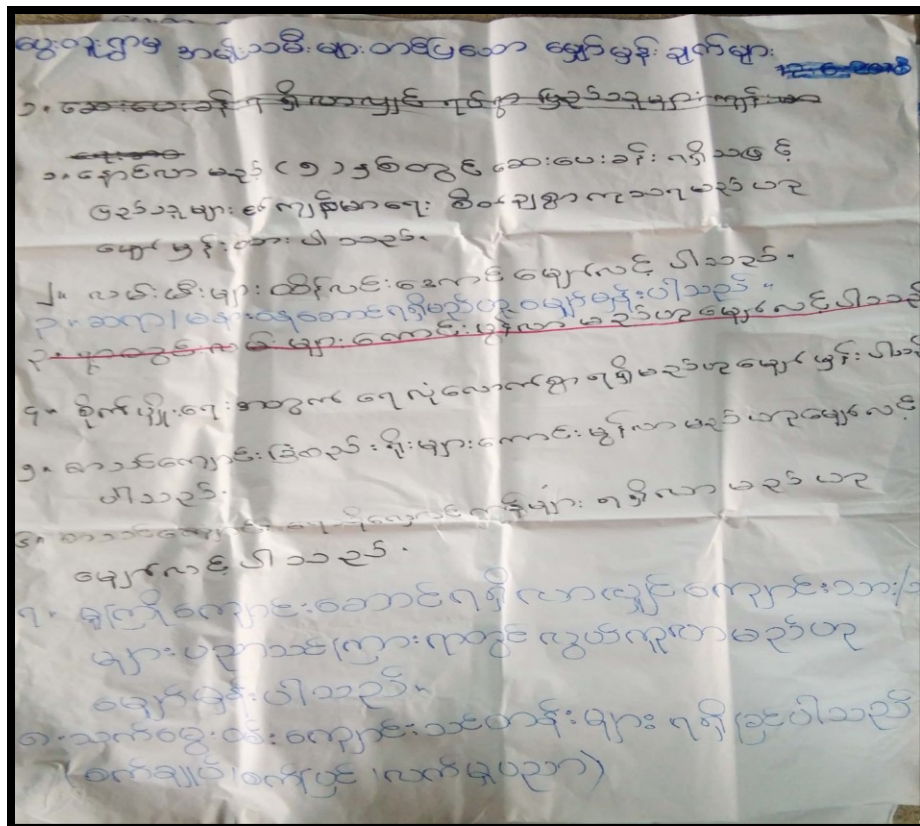 မွေးတူးရွာမှ အမျိုးသမီးများတင်ပြသော မျှော်မှန်းချက်များ
12-6-2018
၁။ ဆေးပေးခန်းရရှိလာလျှင် ရပ်ရွာပြည်သူများကျန်းမာ
၁။ နောင်လာမည့် (၅) နှစ်တွင် ဆေးပေးခန်းရရှိသဖြင့်
ပြည်သူများ၏ကျန်းမာရေး စိတ်ချစွာကုသရမည်ဟု
မျှော်မှန်းထားပါသည်။
၂။ လမ်းမီးများထိန်လင်းအောင်မျှော်လင့်ပါသည်။
၃။ ဆရာ/မများနေဆောင်ရရှိမည်ဟုမျှော်မှန်းပါသည်။
၃။ ရွာတွင်းလမ်းများကောင်းမွန်လာမည်ဟုမျှော်လင့်ပါသည်
၄။ စိုက်ပျိုးရေးအတွက် ရေလုံလောက်စွာရရှိမည်ဟုမျှော်မှန်းပါသည်
၅။ စာသင်ကျောင်းခြံစည်းရိုးများကောင်းမွန်လာမည်ဟုမျှော်လင့်
ပါသည်။
၆။ စာသင်ကျောင်း ရရှိလာမည်ဟု
မျှော်လင့်ပါသည်။
၇။ မူကြိုကျောင်းဆောင်ရရှိလာလျှင်ကျောင်းသား/
များပညာသင်ကြားရာတွင်လွယ်ကူလာမည်ဟု
မျှော်မှန်းပါသည်။
၈။ သက်မွေးဝမ်းကျောင်းသင်တန်းများရရှိခြင်ပါသည်
(စက်ချုပ်၊ စက်ပြင်၊ လက်မှုပညာ)